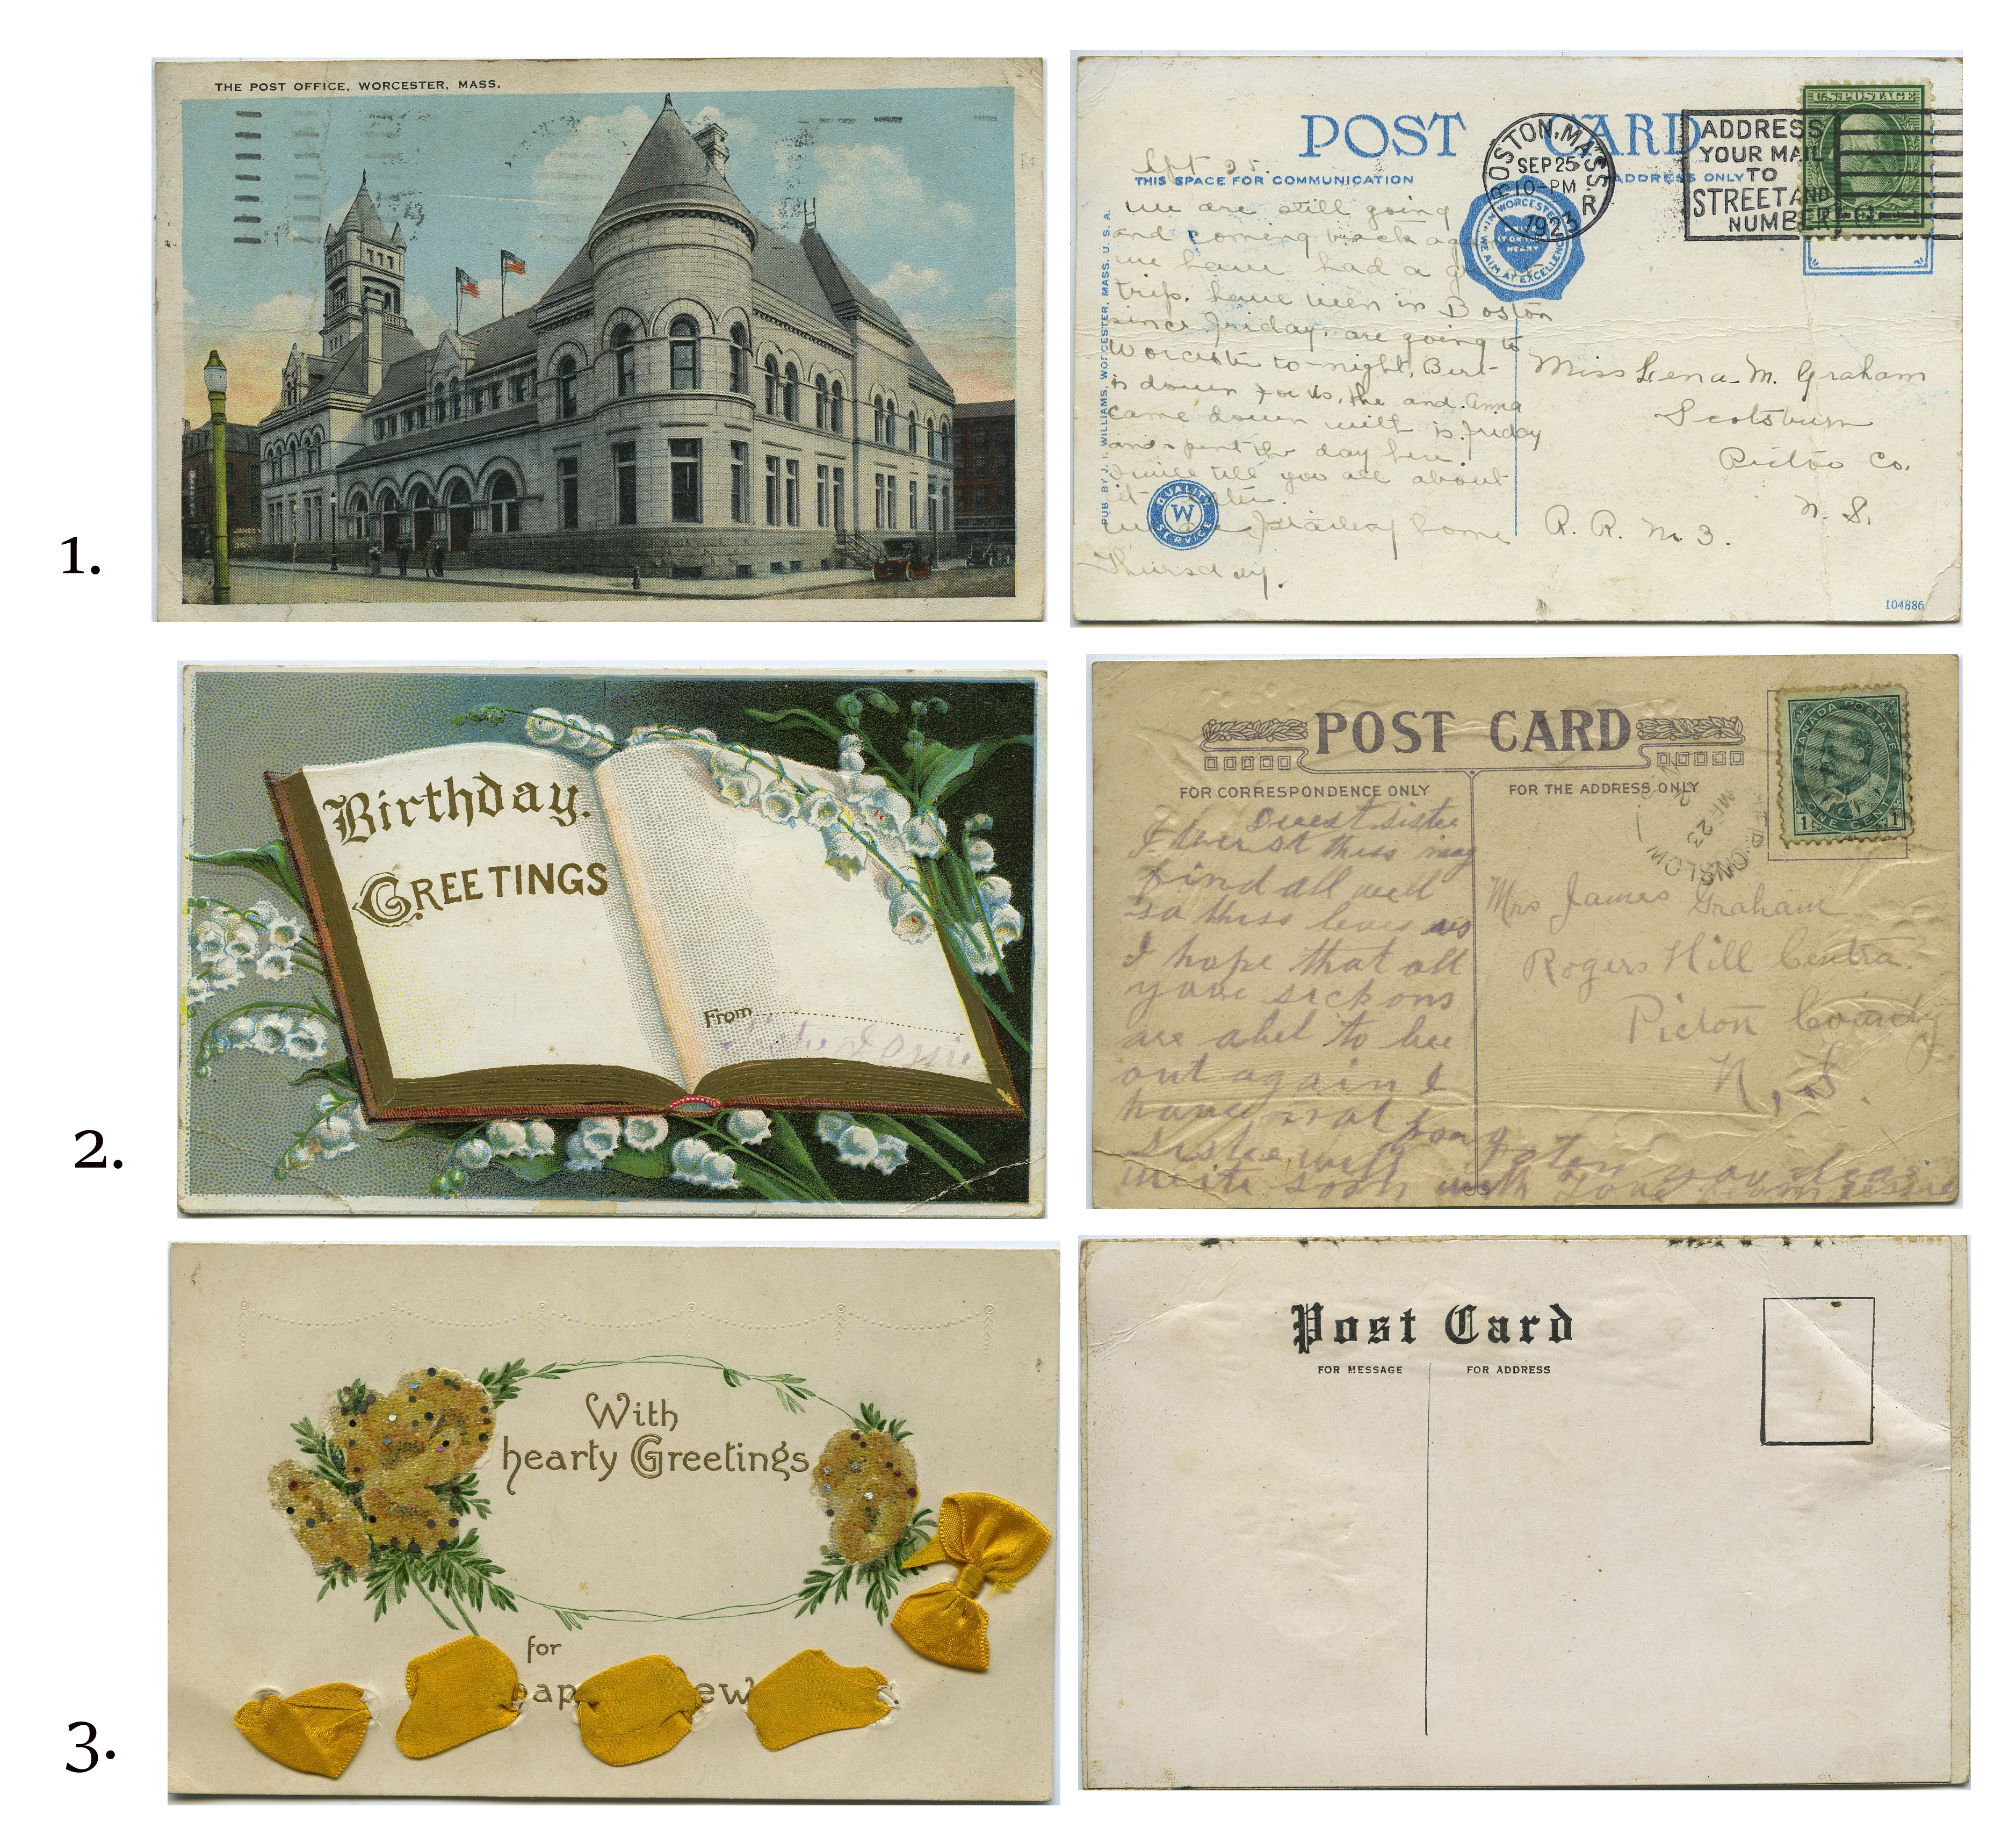 1.
THE POST OFFICE, WORCESTER, MASS.
POST CARD
THIS SPACE FOR COMMUNICATION
ADDRESS ONLY
BOSTON, MASS. R
SEP 25
10-PM
1923
ADDRESS
YOUR MAIL
TO
STREET AND
NUMBER
U.S. POSTAGE
IN WORCESTER
HEART
WE AIM AT EXCELLENCE
PUB. BY J. I. WILLIAMS, WORCESTER, MASS. U. S. A.
Sept 25.
we are still going
and coming back
we have had a
trip. have been in Boston
since Friday. are going to
Worcester to-night, Bert
is down for us, He and Anna
came down with is Friday
and spent the day here.
I will tell you all about
it
home
Thursday.
QUALITY
W
SERVICE
Miss Lena M. Graham
Scotsburn
Pictou Co.
N. S.
R. R. No 3.
104886
2.
Birthday.
GREETINGS
From
POST CARD
FOR CORRESPONDENCE ONLY
FOR THE ADDRESS ONLY
CANADA POSTAGE
1 ONE CENT 1
ONSLOW
MR 23
Dearest sister
I trust this may
find all well
so this leves us
I hope that all
your sick ons
are abel to bee
out again I
have not forgoten you dear
sister will
write soon with love from Jessie
Mrs James Graham
Rogers Hill Centra
Picton County
N, S.
3.
With
hearty Greetings
for
Post Card
FOR MESSAGE
FOR ADDRESS